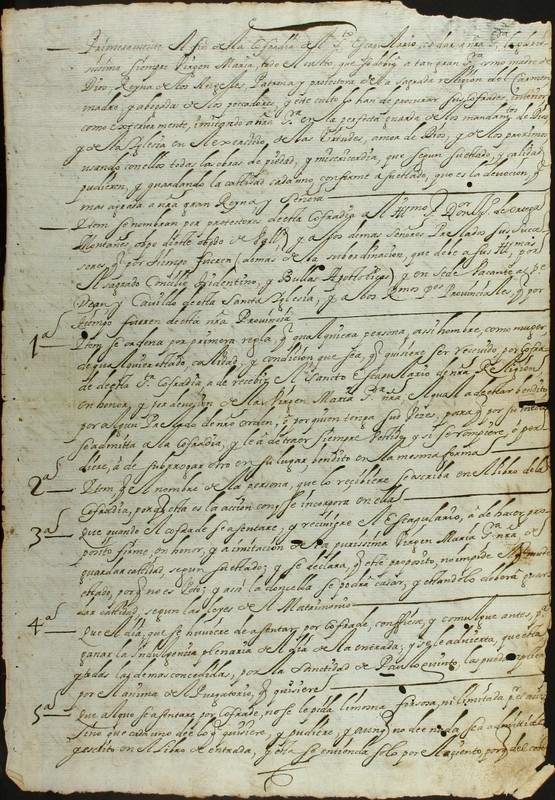 Primeramente el fin de esta Cofradia de el Sto Escapulario, es dar a nra Sra la puri-
ssima siempre Virgen Maria, todo el culto, que se debe a tan gran Sra como madre de
Dios, Reyna de los Angeles, Patrona y protectora de la sagrada religion de el Carmen
madre, y abogada de los pecadores, y este culto lo han de procurar sus cofrades,
como exteriormente, imitando a nra Sra en la perfecta guarda de los mandamtos de Dios
y de la Iglesia en el exercicio, de las virtudes, amor de Dios, y de los proximos
usando con ellos todas las obras de piedad, y misericordia, que segun su estado, y calidad
pudieren, y guardando la castidad cada uno conforme a su estado, que es la devocion, q
mas agrada a nra gran Reyna y Señora
Item se nombran por protectores de esta Cofradia a el Illmo Sor Don de Ortega
Montañes, obpo de este obpdo de y a los demas señores Prelados sus succe-
sores q por tiempo fueren (demas de la subordinacion, que debe a sus por
el sagrado Concilio Tridentino, y Bullas Apostolicas) y en sede vacante
Dean y Cavildo de esta Sancta Iglesia, y a los Rmos pes Provinciales, q por
tiempo fueren de esta nra Provincia
1a Item se ordena por primera regla, q qualquiera persona, assi hombre, como muger
de qualquier estado, calidad, y condicion que sea, q quisiere ser recevido por cofrade
de esta Sta Cofradia, a de recebir el Sancto Escapulario de nra Religion
en honor, y devocion de la Virgen Maria Sra nra, el qual a de estar bendito
por algun Prelado de nro orden, o por quien tenga sus vezes, para q por su medio
se admitta a la cofradia, y le a de traer siempre y si se rompiere, o per-
diere, a de subrogar otro en su lugar bendito en la mesma forma
2a Item, q el nombre de la persona, que lo recibiere se escriba en el libro de la
Cofradia, por q esta es la accion con q se incorpora en ella
3a Que quando el cofrade se asentare, y recibiere el Escapulario, a de hacer pro-
posito firme, en honor, y a imitacion de la purissima Virgen Maria Sra nra, de
guardar castidad, segun su estado; y se declara, q este proposito, no impide el
estado, por q no es voto; y assi la doncella se podra casar, y estandolo debera guar-
dar castidad, segun las leyes de el Matrimonio
4a Que el dia, que se hubiere de asentar por cofrade, confiesse, y comulgue antes, pa
ganar la Indulgencia plenaria de el dia de la entrada; y se le advierta, que esta
y todas las demas concedidas, por la sanctidad de Paulo quinto, las puede aplicar
por el anima de Purgatorio, q quisiere
5a Que al que se asentare por cofrade, no se le pida limosna forsosa, ni limitada,
sino que cada uno de lo q quisiere, y pudiere, y aunq no de nada sea admitido
y escrito en el libro de entrada, y esto se entienda solo por el asiento, por q